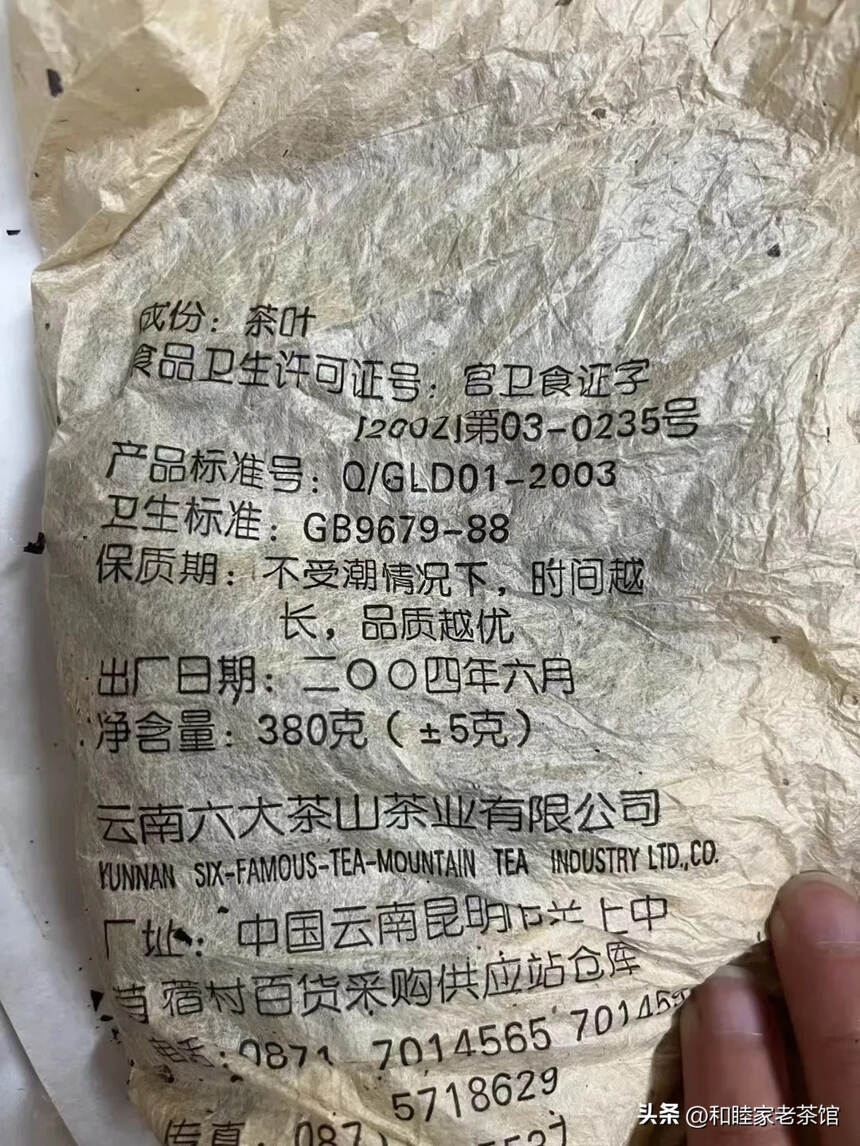 成份：茶叶
食品卫生许可证号：官卫食证字
[2002]第03-0235号
产品标准号：Q/GLD01-2003
卫生标准：GB9679-88
保质期：不受潮情况下，时间越
长，品质越优
出厂日期：二〇〇四年六月
净含量：380克（±5克）
云南六大茶山茶业有限公司
YUNNAN SIX-FAMOUS-TEA-MOUNTAIN TEA INDUSTRY LTD.,CO.
厂址：中国云南昆明市关上中
苜蓿村百货采购供应站仓库
电话：0871 7014565 70145
5718629
传真：087
头条 @和睦家老茶馆